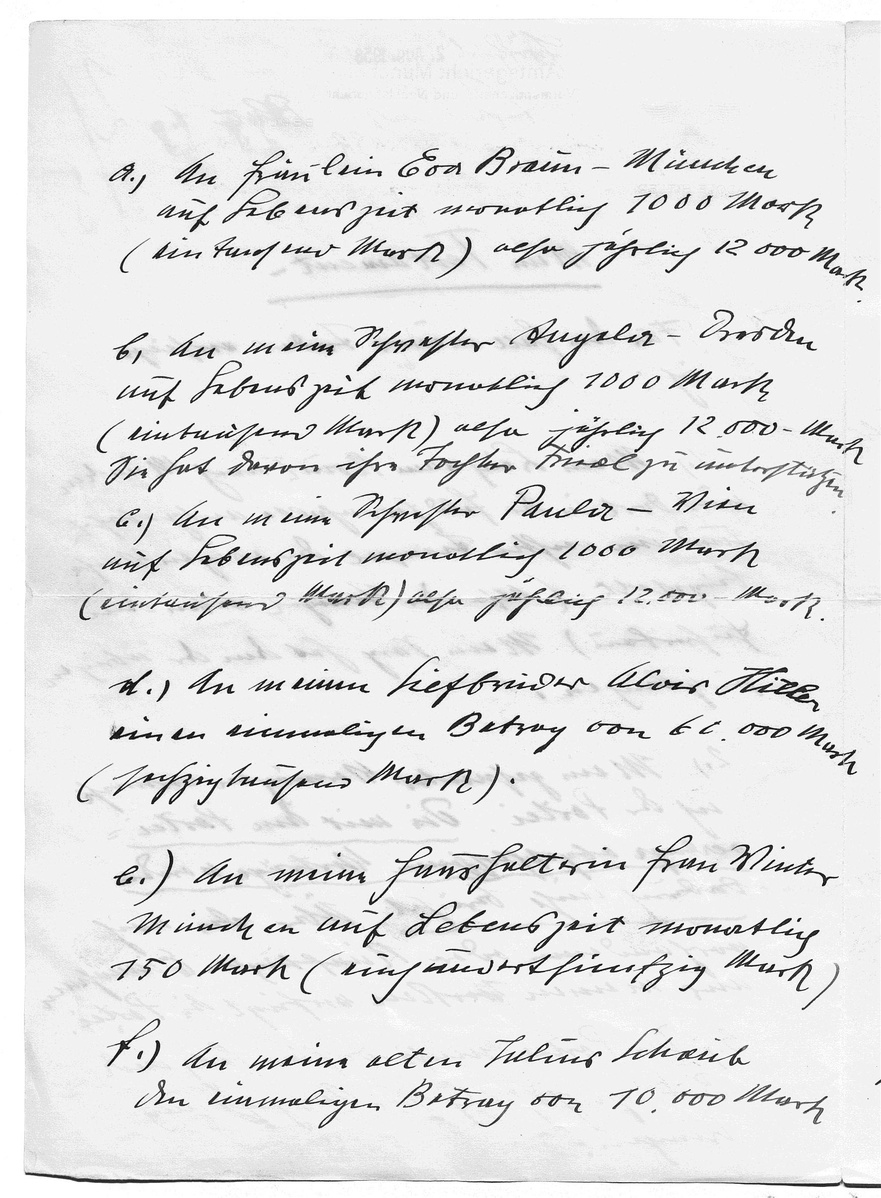 a.) An Fräulein Eva Braun – München
auf Lebenszeit monatlich 1000 Mark
(eintausend Mark) also jährlich 12 000 Mark.
b, An meine Schwester Angela – Dresden
auf Lebenszeit monatlich 1000 Mark
(eintausend Mark) also jährlich 12.000 – Mark
Sie hat davon ihre Tochter Friedl zu unterstützen.
c.) An meine Schwester Paula – Wien
auf Lebenszeit monatlich 1000 Mark
(eintausend Mark) also jährlich 12.000 – Mark.
d.) An meinen Stiefbruder Alois Hitler
einen einmaligen Betrag von 60.000 Mark
(sechzigtausend Mark).
e.) An meine Haushälterin Frau Winter
München auf Lebenszeit monatlich
150 Mark (einhundertfünfzig Mark)
f.) An meinen alten Julius Schaub
den einmaligen Betrag von 10.000 Mark